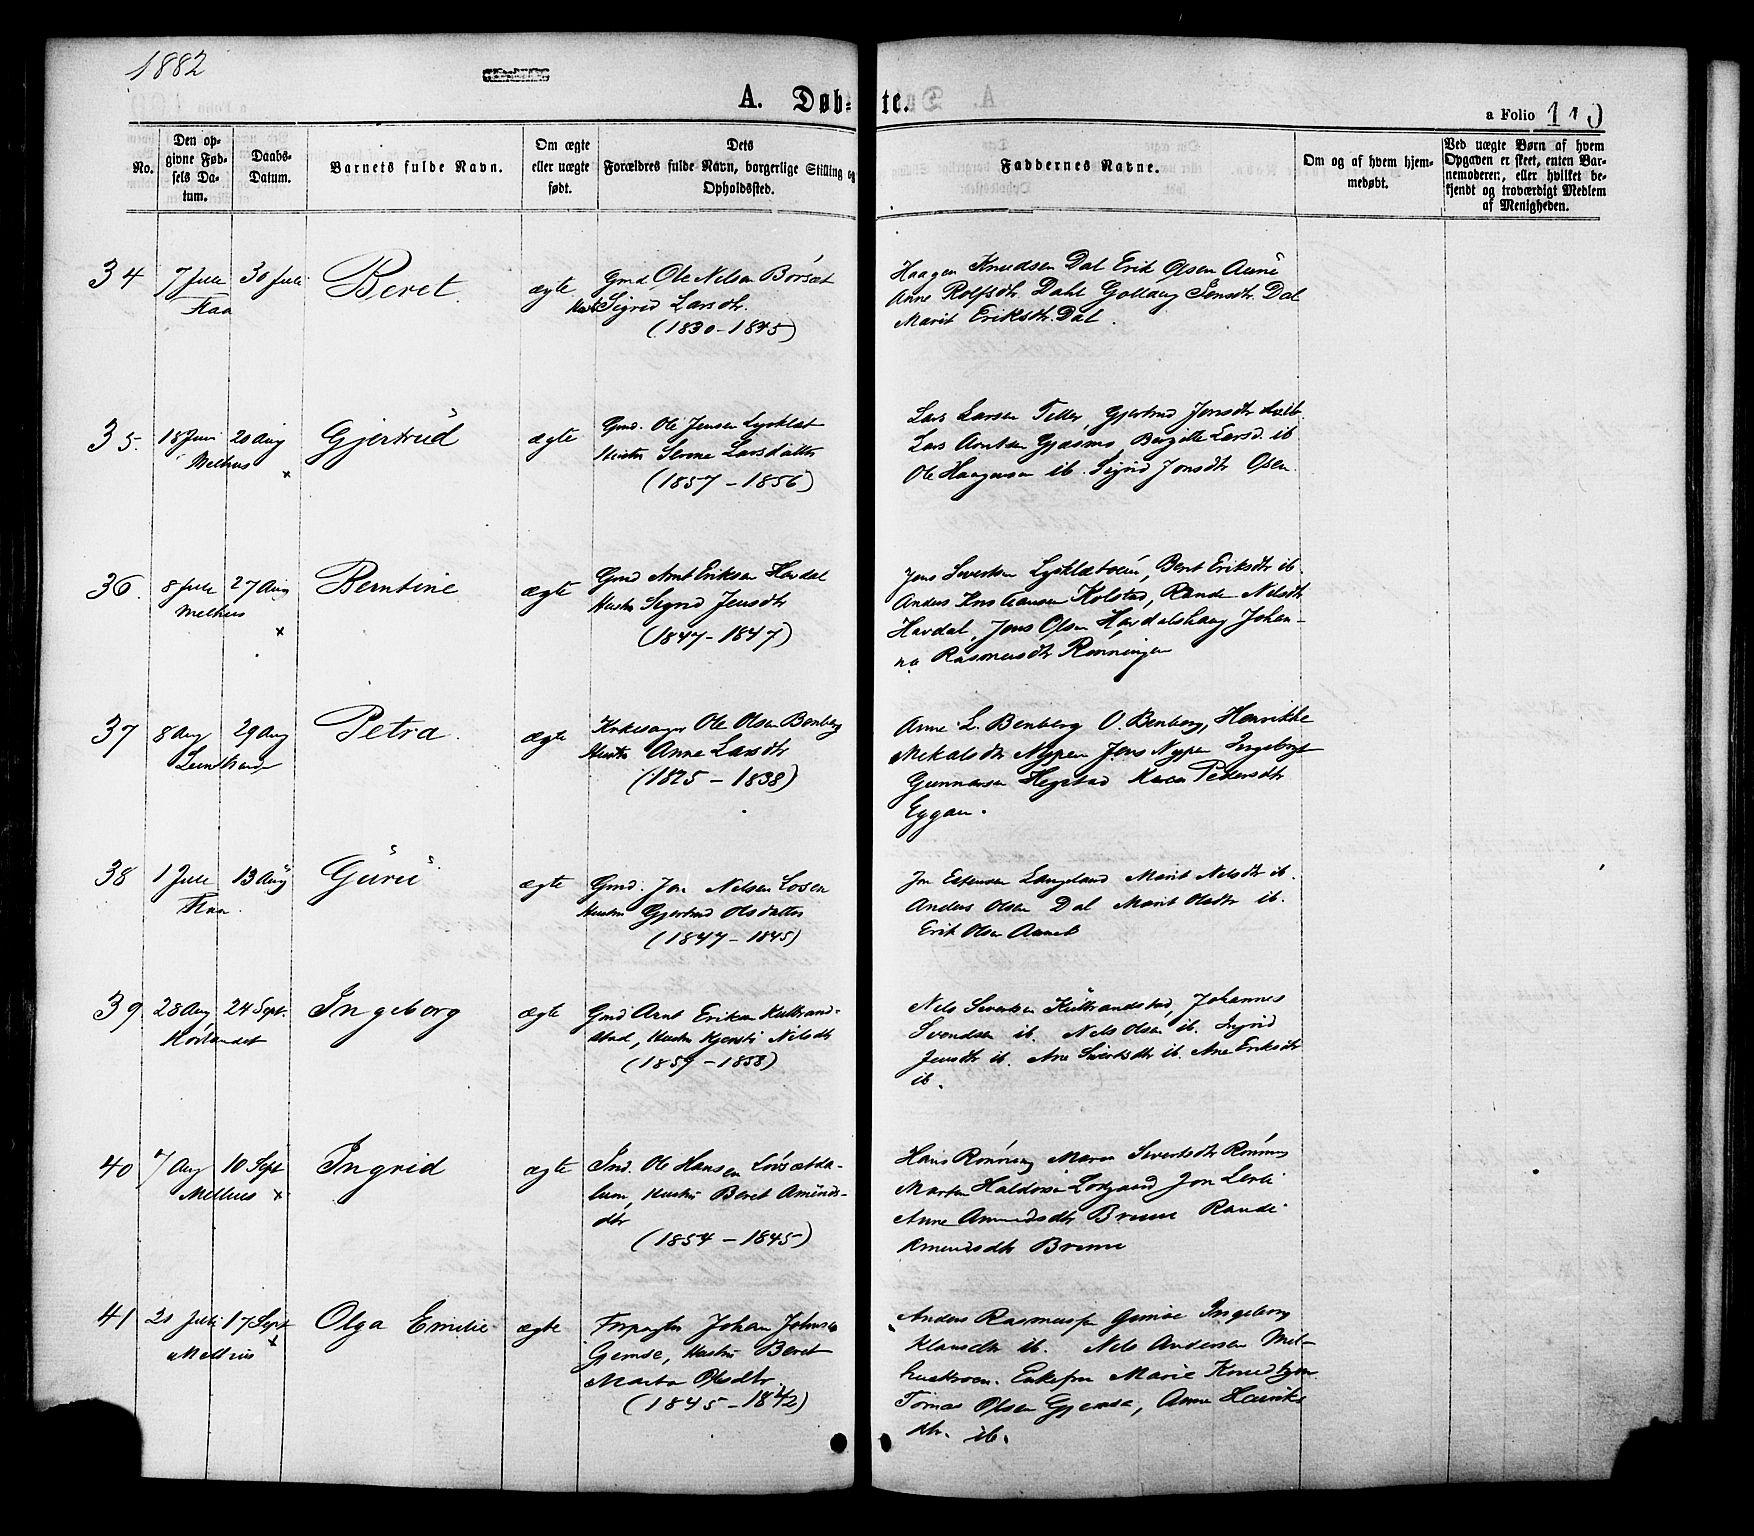 1882
A. Døb- te.
a Folio 110
No.
Den op-
givne Fød-
sels Da-
tum.
Daabs-
Datum.
Barnets fulde Navn.
Om ægte
eller uægte
født.
Dets
Forældres fulde Navn, borgerlige Stilling og
Opholdssted.
Faddernes Navne.
Om og af hvem hjem-
medøbt.
Ved uægte Børn af hvem
Opgaven er skeet, enten Bar-
nemoderen, eller hvilket be-
kjendt og troværdigt Medlem
af Menigheden.
34 7 Juli 30 Juli Beret. ægte Gmd. Ole Nilsen Børsæt
Flaa Sigrid Larsdtr.
(1830-1845)
Haagen Knudsen Dal Erik Olsen Aune
Anne Rolfsdtr. Dahl Gollaug Jensdtr. Dal
Marit Eriksdtr. Dal.
35. 18 Juni 20 Aug Gjertrud ægte Gmd. Ole Jensen Lysklæt
Melhus x Hustru Larsdatter
(1857-1856)
Lars Larsen Teller, Gjertrud Jonsdtr
Lars Arntsen Gjæsmo, Bergitte Larsd. ib
Ole Haagensen ib. Sigrid Jonsdtr Osen
36. 8 Juli 27 Aug Berntine ægte Gmd Arnt Eriksen Havdal
Melhus x Hustru Sigrid Jensdtr
(1847-1847)
Jens Sivertsen Lysklætvein, Berit Eriksdtr ib.
Anders Kristiansen Kolstad, Rande Nilsdtr
Havdal, Jens Olsen Havdalshaug Johan-
na Rasmusdtr Rønningen
37 8 Aug 29 Aug Petra. ægte Kirkesanger Ole Olsen Benberg
Leinstranden Hustru Anne Larsdtr
(1825-1838)
Anne L. Benberg O. Benberg, Henrikke
Mikalsdtr Nypen Jens Nypen Ingeborg
Gunnarsen Hegstad Karen Pedersdtr
Eggan.
38 1 Juli 13 Aug Guru ægte Gmd. Jon Nilsen Losen
Flaa. Hustru Gjertrud Olsdatter
(1847-1845)
Jon Estensen Langland Marit Nilsdtr ib.
Anders Olsen Dal Marit Olsdtr ib.
Erik Olsen
39 28 Aug 24 Sept. Ingeborg ægte Gmd Arnt Eriksen Kulbrand-
Hølandet stad, Hustru Kjersti Nilsdtr
(1857-1858)
Nels Sivertsen Kulbrandstad, Johannes
Svendsen ib. Nels Olsen ib. Ingrid
Jensdtr ib. Ane Sivertsdtr ib. Ane Eriksdtr
ib.
40 7 Aug 10 Sept Ingrid ægte Ind. Ole Hansen Løvsætda-
Melhus x lum, Hustru Beret Amunds-
dtr
(1854-1845)
Hans Rønning Maren Sivertsdtr Rønning
Marten Haldorsen Loegaard Jon Lerli
Anne Amundsdtr Bruue Randi
Amundsdtr Bruue
41 21 Juli 17 Sept Olga Emilie ægte Forpagter Johan Johnsen
Melhus x Gjemse, Hustru Beret
Marta Olsdtr.
(1845-1842)
Anders Rasmussen Gimse Ingeborg
Klausdtr ib. Nels Andersen Mel-
huskroen. Enkefru Marie
Tomas Olsen Gjemse, Anne Henriks
dtr. ib.